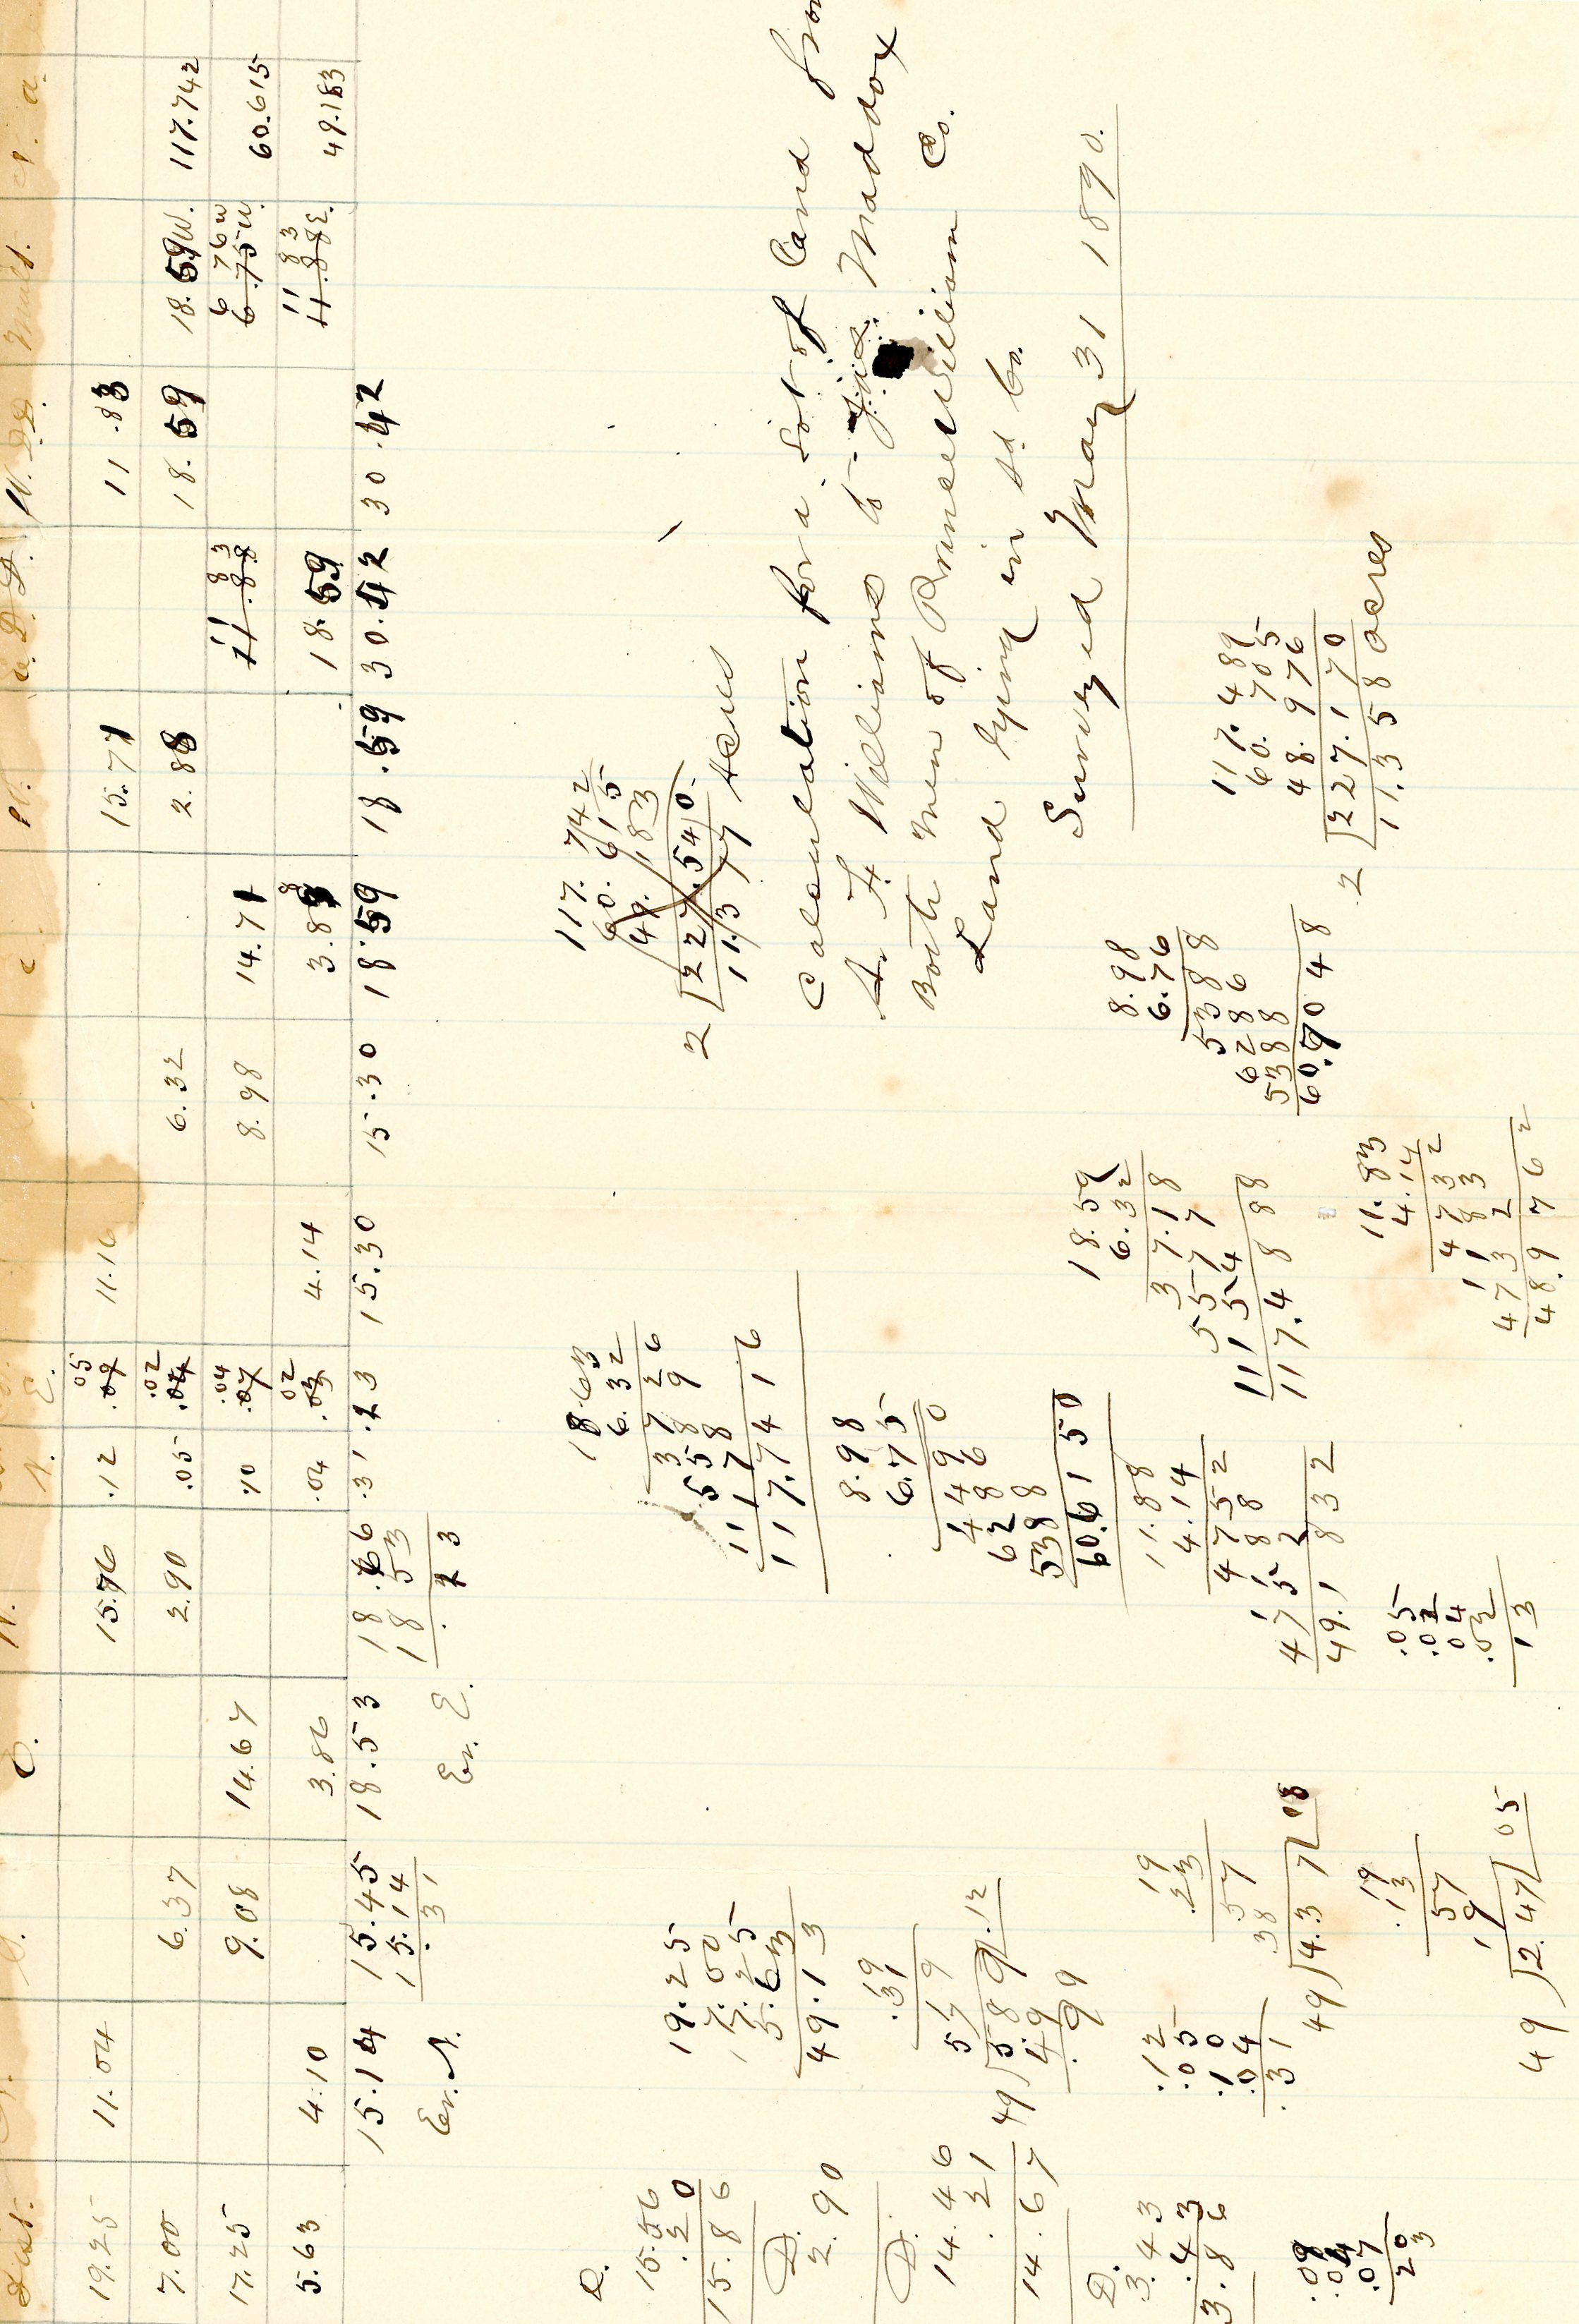 Dist. S. E. N. S. E.
19.25 11.04 15.76 .12 .09 05 11.16 15.71 11.83
7.00 6.37 2.90 .05 .04 .02 6.32 2.88 18.59 18.59W. 117.742
17.25 9.08 14.67 .10 .07 .04 8.98 14.71 11.88 11 83 6.75W. 6 76W 60.615
5.63 4.10 3.86 .04 .03 02 4.14 3.88 18.59 11.88E. 11 83 49.183
15.14 15.45 18.53 18.66 .31 .13 15.30 15.30 18.59 18.59 30.42 30.42
15.14 18 53
Er. S. .31 Er. E. . 13
D.
15.56
.30
15.86
D.
2.90
D.
14.46
.21
14.67
D.
3.43
.43
3.86
.09
.04
.07
20
3
19.25
7.00
17.25
5.63
49.13
.19
.31
19
57
49)5 89(.12
4.9
.99
.12
.05
.10
.04
.31
19
.23
57
38
49)4.37(08
.19
13
57
19
49)2.47(05
18.63
6.32
37 26
558 9
1117 8
117.74 16
8.98
6.75
44 90
628 6
5388
60.6150
11.88
4.14
4752
1188
4752
49.1832
.05
.02
04
.02
13
18.59
6.32
37.18
557 7
1115 4
117.4888
8.98
6.76
5388
6286
5388
60.7048
11.83
4.14
4732
1183
4732
48.9762
117.742
60.615
49.183
2 |227.540
113 77 Acres
Calculation for a Lot of Land from
A. F. Williams to Jas. Maddox
Both Men of Prince William Co.
Land lying in sd Co.
Surveyed May 31 1890.
117.489
60.705
48.976
2 |227.170
11.358 acres